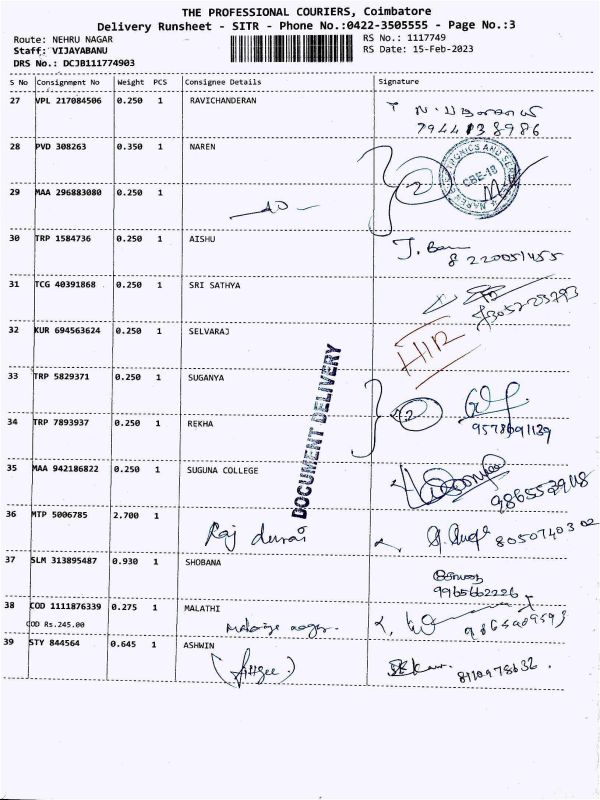 THE PROFESSIONAL COURIERS, Coimbatore
Delivery Runsheet - SITR - Phone No.:0422-3505555 - Page No.:3
Route: NEHRU NAGAR
RS No.: 1117749
Staff: VIJAYABANU
RS Date: 15-Feb-2023
DRS No.: DCJB111774903
S No Consignment No Weight PCS Consignee Details Signature
27 VPL 217084506 0.250 1 RAVICHANDERAN
7944138986
28 PVD 308263 0.350 1 NAREN
2
CBE-18
29 MAA 296883080 0.250 1
-do-
30 TRP 1584736 0.250 1 AISHU
8220051455
31 TCG 40391868 0.250 1 SRI SATHYA
32 KUR 694563624 0.250 1 SELVARAJ
33 TRP 5829371 0.250 1 SUGANYA
34 TRP 7893937 0.250 1 REKHA
9578691139
DOCUMENT DELIVERY
35 MAA 942186822 0.250 1 SUGUNA COLLEGE
36 MTP 5006785 2.700 1
Raj durai
8050740302
37 SLM 313895487 0.930 1 SHOBANA
9965662226
38 COD 1111876339 0.275 1 MALATHI
COD Rs.245.00
39 STY 844564 0.645 1 ASHWIN
8110978632.